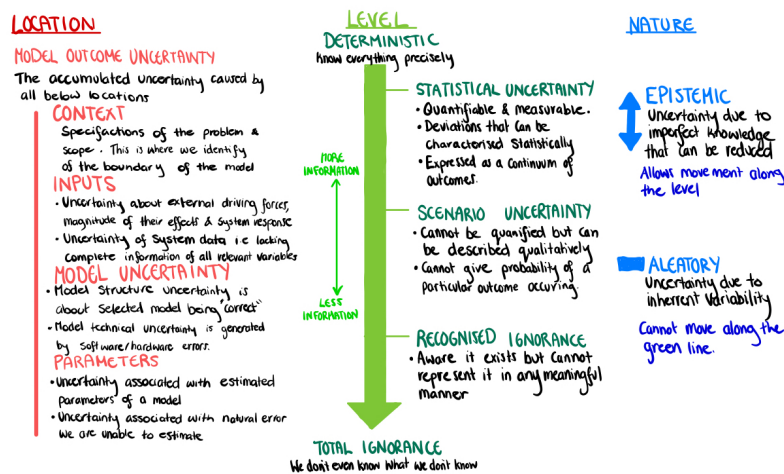 LOCATION
MODEL OUTCOME UNCERTAINTY
The accumulated uncertainty caused by
all below locations
CONTEXT
Specifactions of the problem &
scope. This is where we identify
of the boundary of the model
INPUTS
• Uncertainty about external driving forces,
magnitude of their effects & system response
• Uncertainty of System data i.e lacking
complete information of all relevant variables
MODEL UNCERTAINTY
• Model Structure uncertainty is
about selected model being "correct"
• Model technical uncertainty is generated
by software/hardware errors.
PARAMETERS
• Uncertainty associated with estimated
parameters of a model
• Uncertainty associated with natural error
we are unable to estimate
LEVEL
DETERMINISTIC
Know everything precisely
MORE
INFORMATION
LESS
INFORMATION
STATISTICAL UNCERTAINTY
• Quantifiable & measurable.
• Deviations that can be
characterised statistically
• Expressed as a continuum of
outcomes.
SCENARIO UNCERTAINTY
• Cannot be quanified but can
be described qualitatively
• Cannot give probability of a
particular outcome occuring.
RECOGNISED IGNORANCE
• Aware it exists but cannot
represent it in any meaningful
manner
TOTAL IGNORANCE
We don't even know what we don't know
NATURE
EPISTEMIC
Uncertainty due to
imperfect knowledge
that can be reduced
Allows movement along
the level
ALEATORY
Uncertainty due to
inherrent variability
Cannot move along the
green line.